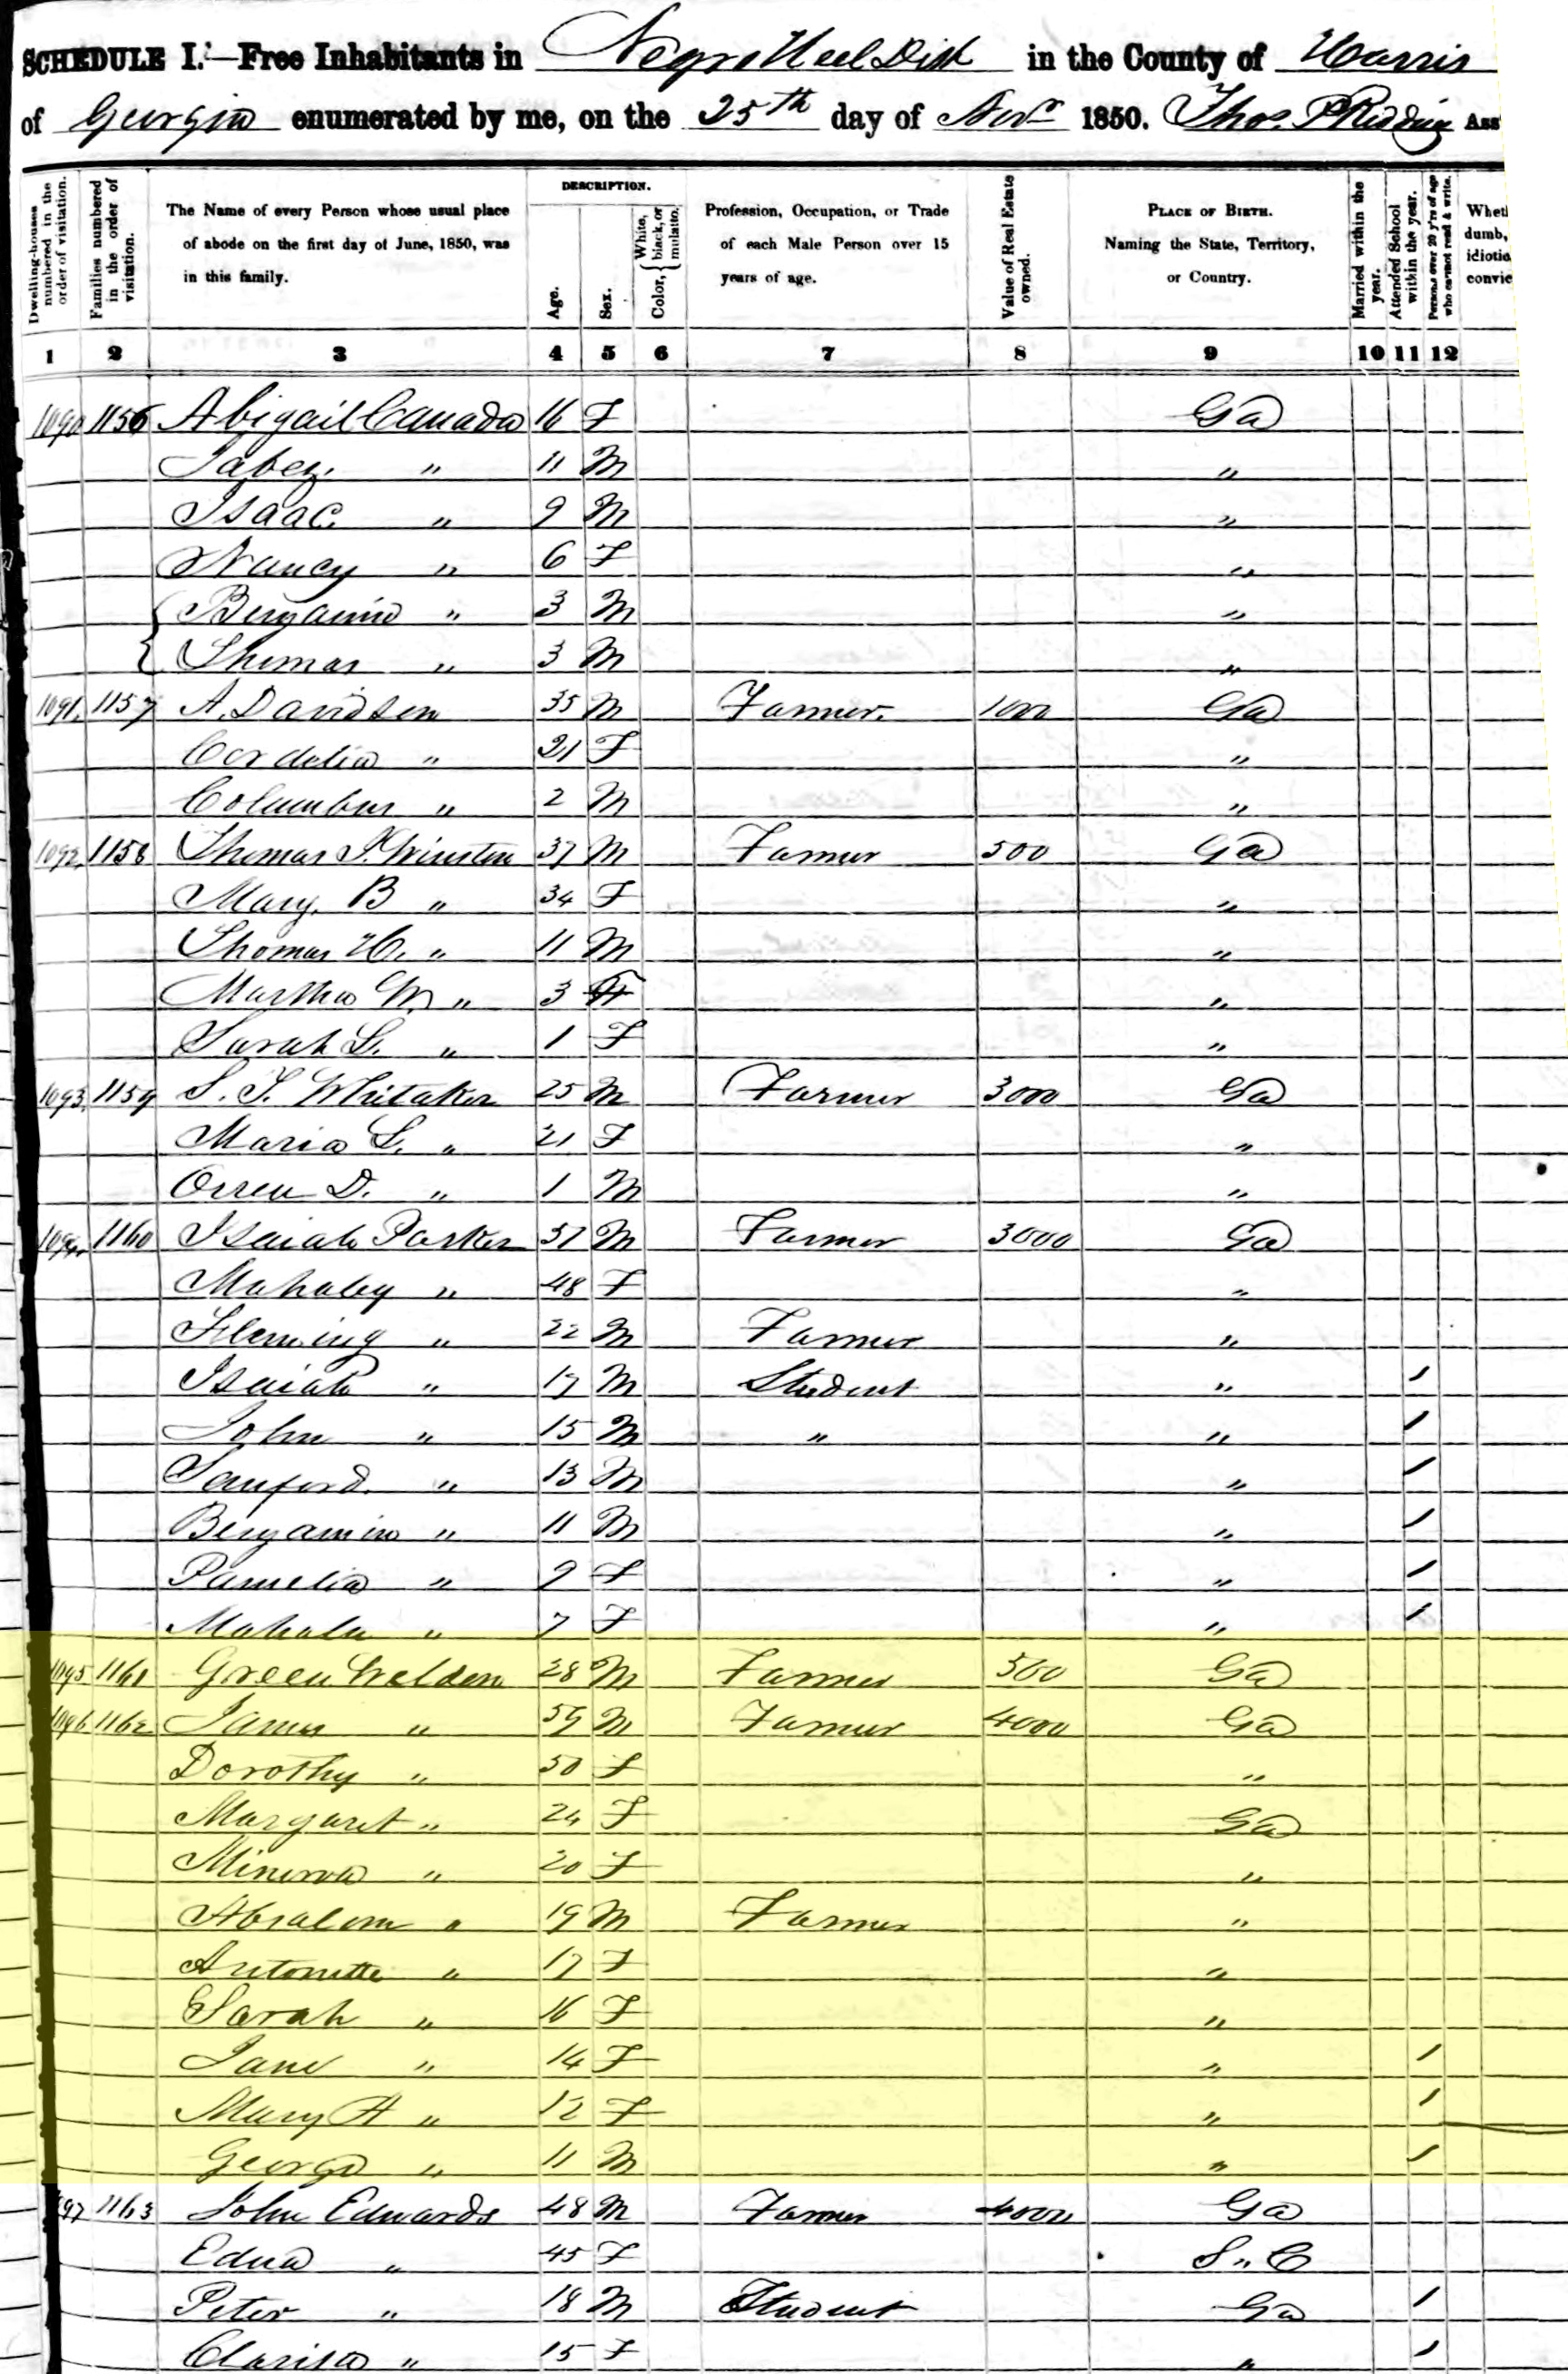 SCHEDULE I.—Free Inhabitants in Negro Heel Dist in the County of Harris
of Georgia enumerated by me, on the 25th day of Novr 1850. Thos. P Redding Ass
Dwelling-houses numbered in the order of visitation.
Families numbered in the order of visitation.
The Name of every Person whose usual place of abode on the first day of June, 1850, was in this family.
DESCRIPTION.
Age.
Sex.
Color, { White, black, or mulatto.
Profession, Occupation, or Trade of each Male Person over 15 years of age.
Value of Real Estate owned.
PLACE OF BIRTH.
Naming the State, Territory, or Country.
Married within the year.
Attended School within the year.
Persons over 20 y'rs of age who cannot read & write.
Whet
dumb,
idiotic
convic
1 2 3 4 5 6 7 8 9 10 11 12
1090 1156 Abigail Canada 16 F Ga
Jabez. " 11 M "
Isaac. " 9 M "
Nancy " 6 F "
{ Benjamin " 3 M "
{ Thomas " 3 M "
1091. 1157 A. Davidson 35 M Farmer. 1000 Ga
Cordelia " 21 F "
Columbus " 2 M "
1092, 1158 Thomas J. Winston 37 M Farmer 500 Ga
Mary. B " 34 F "
Thomas H. " 11 M "
Martha M " 3 F "
Sarah L. " 1 F "
1093, 1159 S. T. Whitaker 25 M Farmer 3000 Ga
Maria L. " 21 F "
Orren D. " 1 M "
1094, 1160 Isaiah Parker 51 M Farmer 3000 Ga
Mahaley " 48 F "
Fleming " 22 M Farmer "
Isaiah " 17 M Student " 1
John " 15 M " " 1
Sanford. " 13 M " 1
Benjamin " 11 M " 1
Pamelia " 9 F " 1
Mahala " 7 F " 1
1095 1161 Green Weldon 28 M Farmer 500 Ga
1096 1162 James " 59 M Farmer 4000 Ga
Dorothy " 50 F "
Margaret " 24 F Ga
Minerva " 20 F "
Absalom " 19 M Farmer "
Antonette " 17 F "
Sarah " 16 F "
Jane " 14 F " 1
Mary A " 12 F " 1
George " 11 M " 1
1097 1163 John Edwards 48 M Farmer 4000 Ga
Edna " 45 F S " C
Peter " 18 M Student Ga 1
Clarisa " 15 F " 1